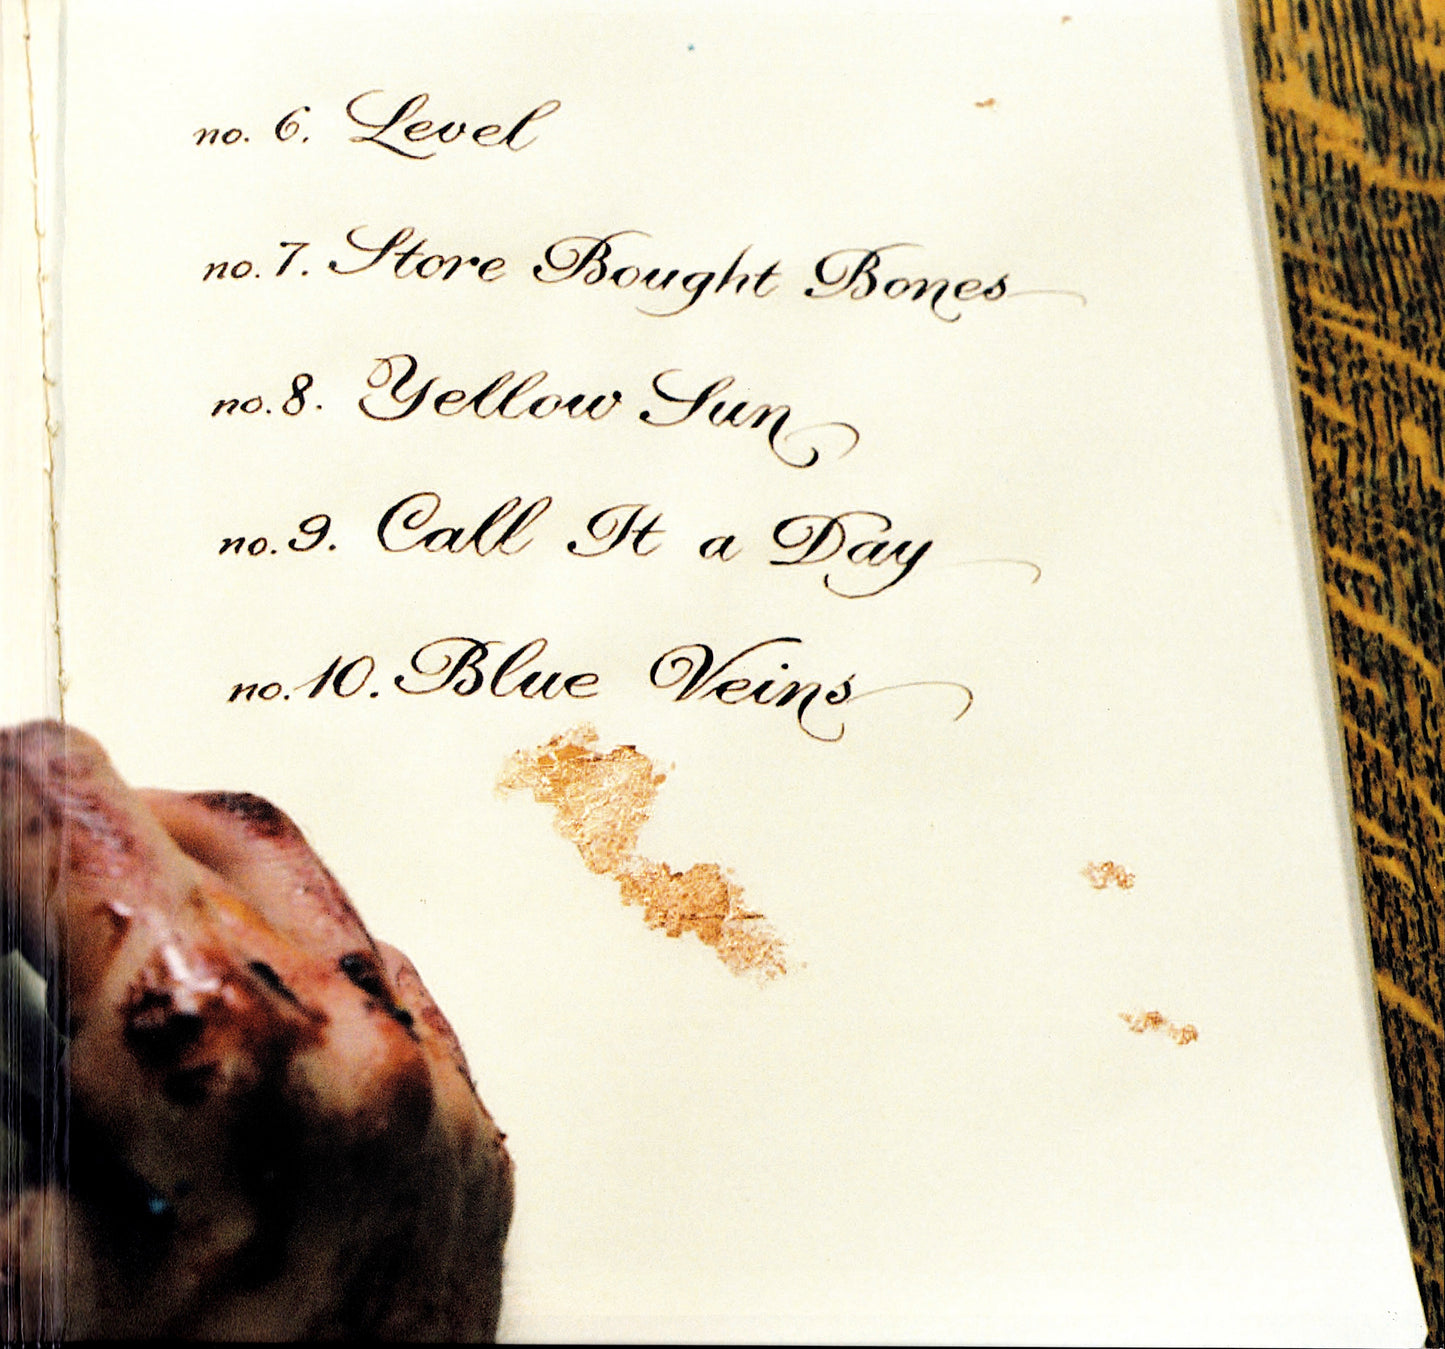 no. 6. Level
no. 7. Store Bought Bones
no. 8. Yellow Sun
no. 9. Call It a Day
no. 10. Blue Veins